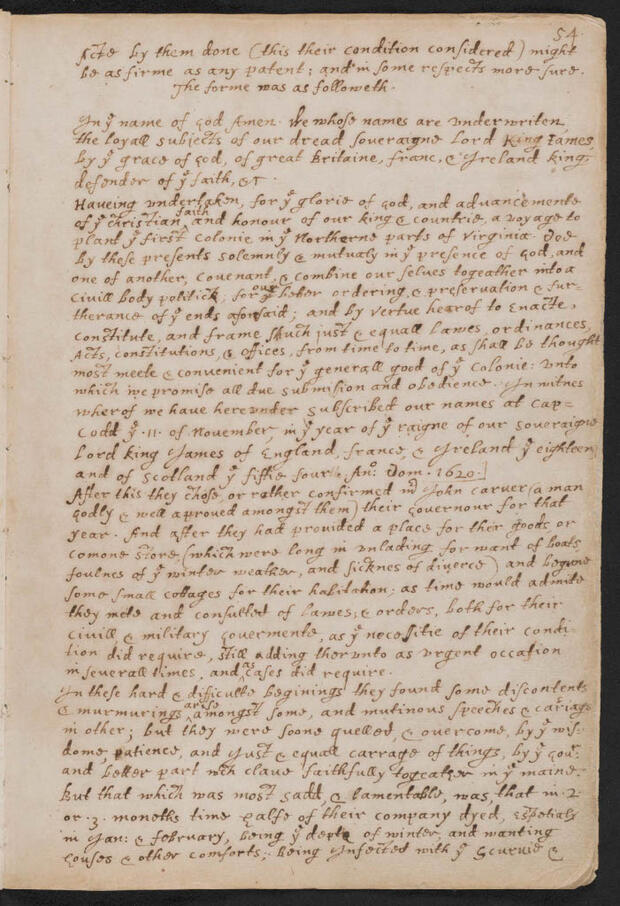 54
Acte by them done (this their condition considered) might
be as firme as any patent; and in some respects more sure.
The forme was as followeth.
In yͤ name of god Amen. We whose names are vnderwriten,
the loyall subjects of our dread soveraigne Lord King James
by yͤ grace of god, of great Britaine, franc, & Ireland king,
defender of yͤ faith, &c
Haveing vndertaken, for yͤ glorie of god, and advancemente
of yͤ christian faith and honour of our king & countrie, a voyage to
plant yͤ first colonie in yͤ Northerne parts of Virginia. Doe
by these presents solemnly & mutualy in yͤ presence of god, and
one of another, covenant, & combine our selves togeather into a
civill body politick; for our better ordering, & preservation & fur=
therance of yͤ ends aforesaid; and by vertue hearof to enacte,
constitute, and frame shuch just & equall lawes, ordinances,
Acts, constitutions, & offices, from time to time, as shall be thought
most meete & convenient for yͤ generall good of yͤ colonie: vnto
which we promise all due submission and obedience. In witnes
wherof we have herevnder subscribed our names at cap=
Codd yͤ .11. of November, in yͤ year of yͤ raigne of our soveraigne
Lord king James of England, france, & Ireland yͤ eighteen
and of Scotland yͤ fiftie fourth. Anᵒ: Dom. 1620.
After this they chose, or rather confirmed mʳ John carver (a man
godly & well aproved amongst them) their governour for that
year. And after they had provided a place for their goods, or
comone store, (which were long in vnlading for want of boats,
foulnes of yͤ winter weather, and sicknes of diverce) and begune
some small cottages for their habitation; as time would admite
they mete and consulted of lawes, & orders, both for their
civill, & military govermente, as yͤ necessitie of their condi-
tion did require, still adding thervnto as vrgent occasion
in severall times, and as cases did require.
In these hard & difficulte beginings they found some discontents
& murmurings arise amongst some, and mutinous speeches & cariags
in other; but they were soone quelled, & overcome, by yͤ wis-
dome, patience, and just & equall carrage of things, by yͤ Govʳ:
and better part wᶜʰ clave faithfully togeather in yͤ maine.
But that which was most sadd, & lamentable, was, that in .2.
or .3. moneths time halfe of their company dyed, espetialy
in Jan: & february, being yͤ depth of winter, and wanting
houses & other comforts; being Infected with yͤ Scurvie &